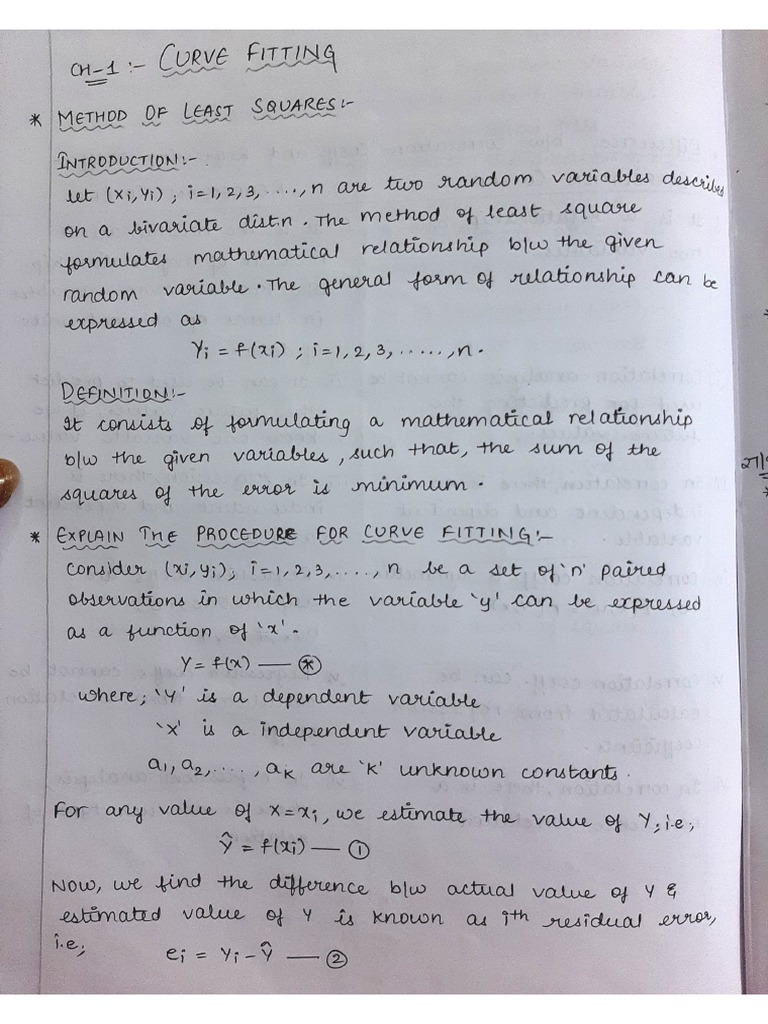 CH-1 :- CURVE FITTING
* METHOD OF LEAST SQUARES:-
INTRODUCTION:-
Let (xi, yi) ; i=1, 2, 3, ...., n are two random variables describes
on a bivariate dist.n. The method of least square
formulates mathematical relationship b/w the given
random variable. The general form of relationship can be
expressed as
Yi = f(xi) ; i=1, 2, 3, ......, n.
DEFINITION:-
It consists of formulating a mathematical relationship
b/w the given variables, such that, the sum of the
squares of the error is minimum.
* EXPLAIN THE PROCEDURE FOR CURVE FITTING:-
Consider (xi, yi); i=1, 2, 3, ...., n be a set of 'n' paired
observations in which the variable 'y' can be expressed
as a function of 'x'.
Y = f(x) — (*)
where; 'Y' is a dependent variable
'x' is a independent variable
a1, a2, ...., aK are 'K' unknown constants.
For any value of x=xi, we estimate the value of Y, i.e;
Ŷ = f(xi) — ①
Now, we find the difference b/w actual value of Y &
estimated value of Y is known as ith residual error,
i.e; ei = Yi - Ŷ — ②